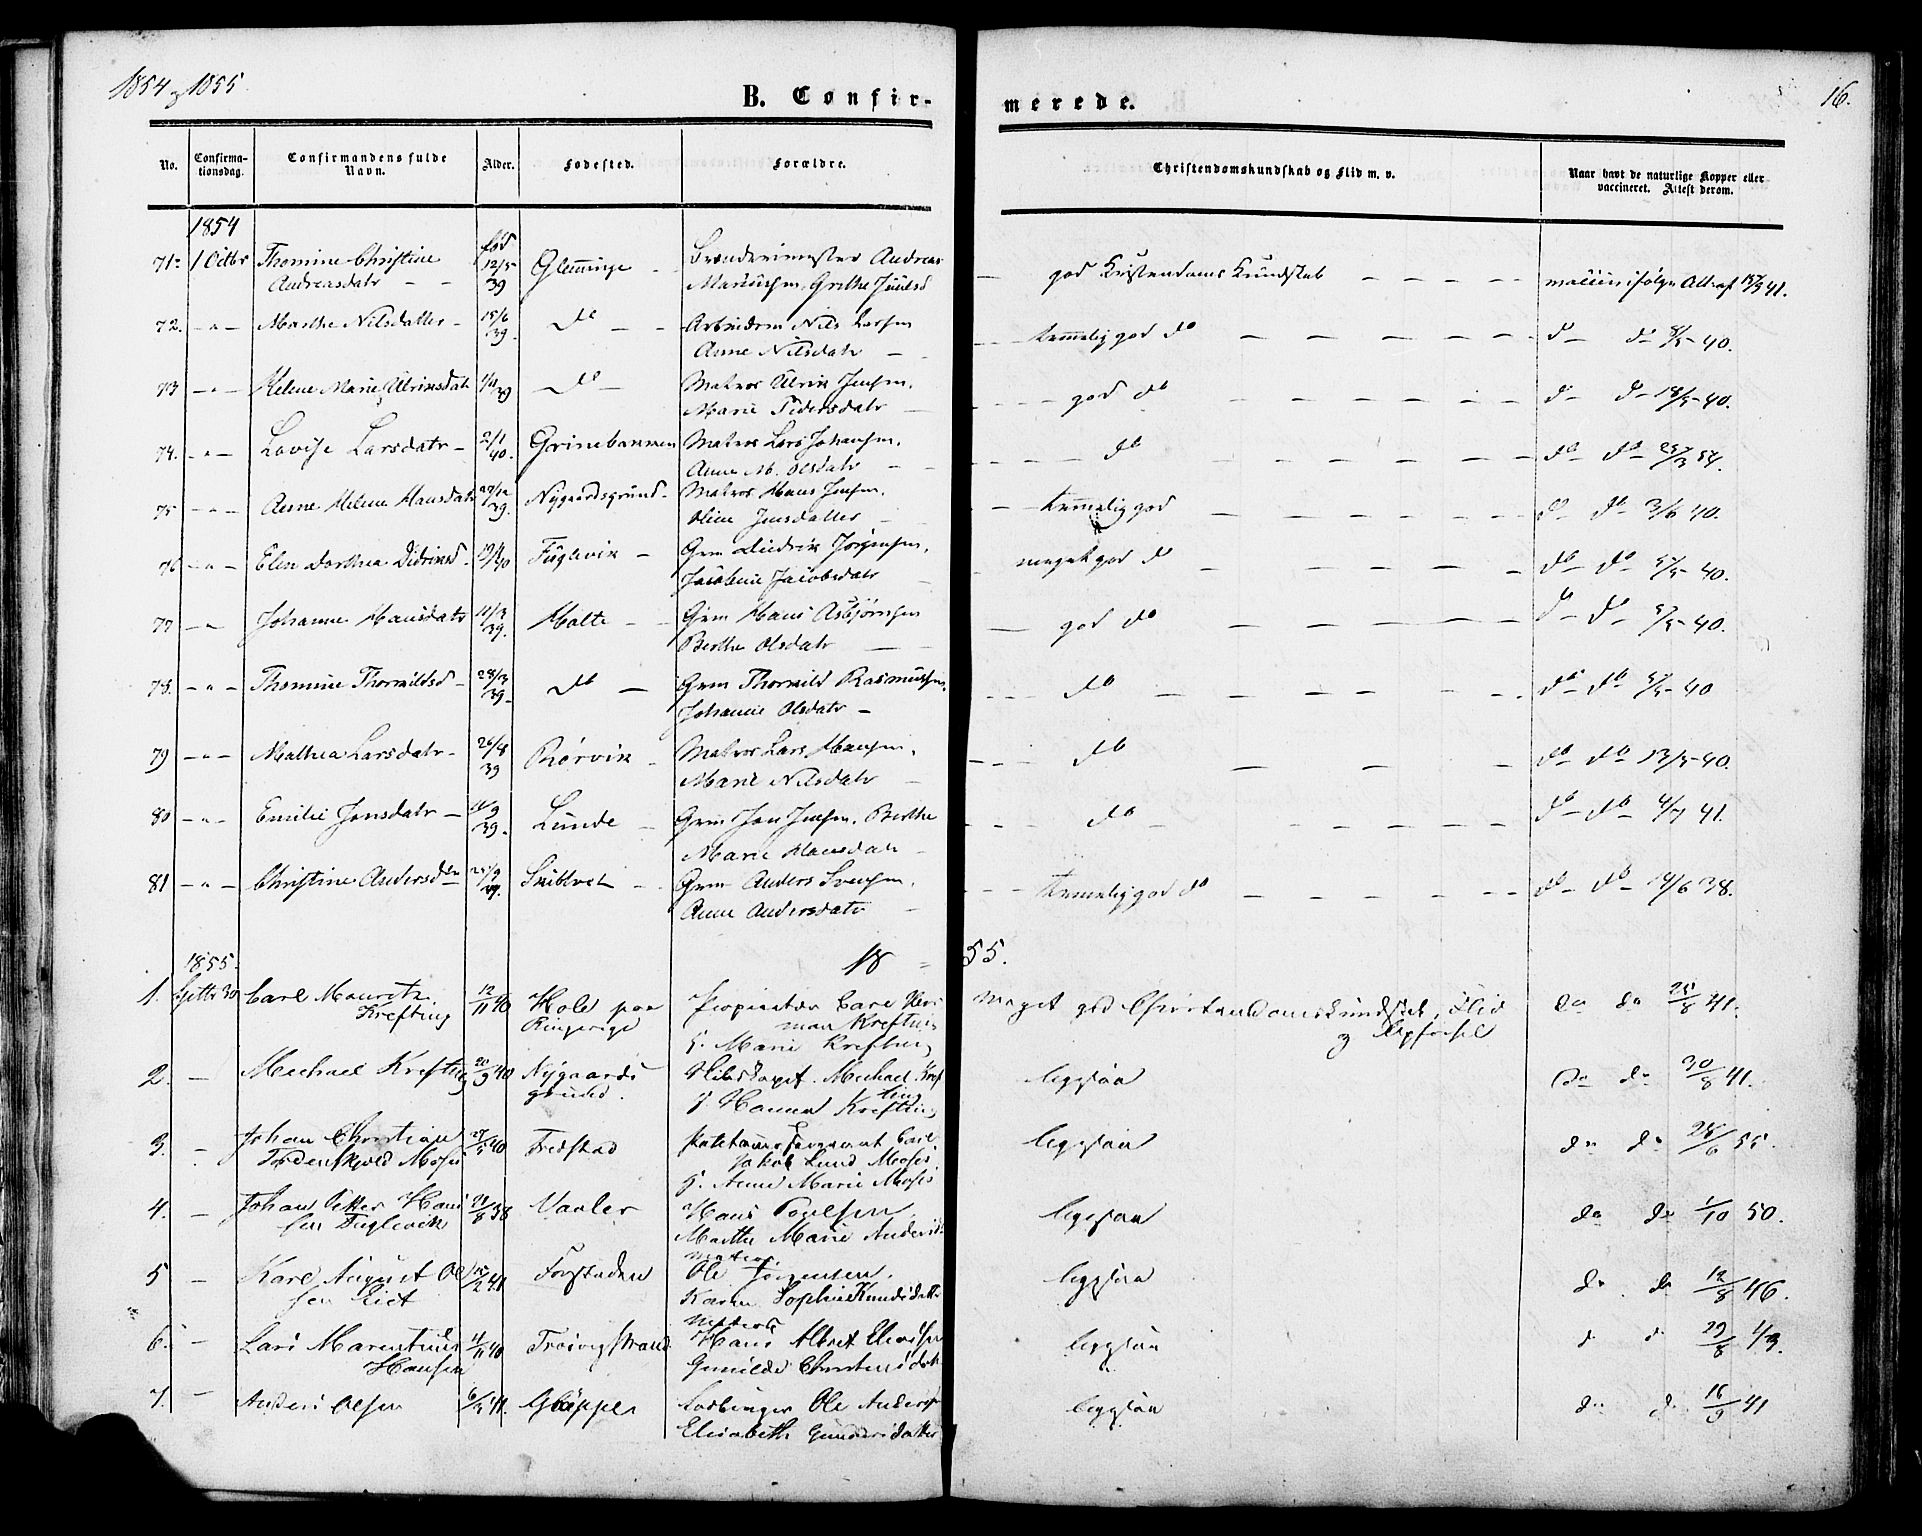 1854 & 1855
B. Confir-
merede.
16.
No.
Confirma-
tionsdag.
Confirmandens fulde
Navn.
Alder.
Fødested.
Forældre.
Christendomskundskab og Flid m. v.
Naar havt de naturlige Kopper eller
vaccineret. Attest derom.
1854
71. 1 Octbr Thomine Christine fød 12/5 Glemminge Andreas god Kristendoms Kundskab
Andreasdatr 39 Grethe
72. - " - Marthe Nilsdatter - 15/6 39. do Nils Larsen temmelig god do do do 8/5 40.
Anne Nilsdatr
73 - " - Helene Marie Ulriksdatr 1/11 39 do Matros Ulrik Jensen. god do do do 18/5 40.
Marie Pedersdatr
74. - " - Lovise Larsdatr - 2/1 40. Matros Lars Johansen. do do do 54.
Anne M. Olsdatr
75 - " - Anne Helene Hansdatr 27/12 39. Nygaardsgrund - Matros Hans Jensen. temmelig god do do 3/6 40.
Oline Jensdatter
76 - " - Elen Dorthea Didriksd. Fuglevik - Gm Diedrik Jørgensen. meget god do do do 5/5 40.
Jacobine Jacobsdatr
77 - " Johanne Hansdatr 11/3 39. Holte Gm Hans Asbjørnsen god do do do 5/5 40.
Berthe Olsdatr
78. - " - Thomine Thorvildsd - 28/3 39. do Gm Thorvild Rasmussen. do do do 5/5 40
Johanne Olsdatr -
79 - " - Mathea Larsdatr - 26/8 39 Rørvik Matros Lars Hansen. do do do 13/5 40.
Marie Nilsdatr
80 - " - Emilie Jensdatr - 39. Lunde Gm Jen Jensen. Berthe do do do 4/7 41.
Marie Hansdatr
81 - " - Christine Andersdtr 25/9 39. Skibtvet Gm Anders Svensen. temmelig god do do do 14/6 38.
Anne Andersdatr
1855. 18 55.
1. 30 Carl Mauritz 12/11 40 Hole paa Proprietær Carl Her- Meget god Christendomskundskab, Flid do do 25/8 41.
Krefting Ringerige man Krefting & Opførsel
& Marie Krefting
2. - Michael Krefting 20/9 40 Nygaards Skibskapt. Michael Kref- ligesaa do do 30/8 41.
grund. ting
& Hanna Krefting
3. - Johan Christian 27/5 40 Fredstad Carl ligesaa do do 28/6 55.
Tordenskjold Moses Jakob Lund Moses.
& Anne Marie Moses
4. - Johan Petter Han- 21/8 38 Vaaler Hans Poulsen. ligesaa do do 1/10 50.
sen Fuglevik Marthe Marie Andersd
5 - Karl August Ol- 2 41 Forstaden Matros Ole Jørgensen. ligesaa do do 12/8 46.
sen Karen Sophie Knudsdatter
6. - Lars Marentius 4/11 40 Trosvigstrand Matros Hans Albret ligesaa do do 29/8 43.
Hansen Gunilde Christensdatr
7. - Anders Olsen 6/3 41. Glæppen Ole Anders ligesaa do do 16/9 41
Elisabeth Gundersdatter